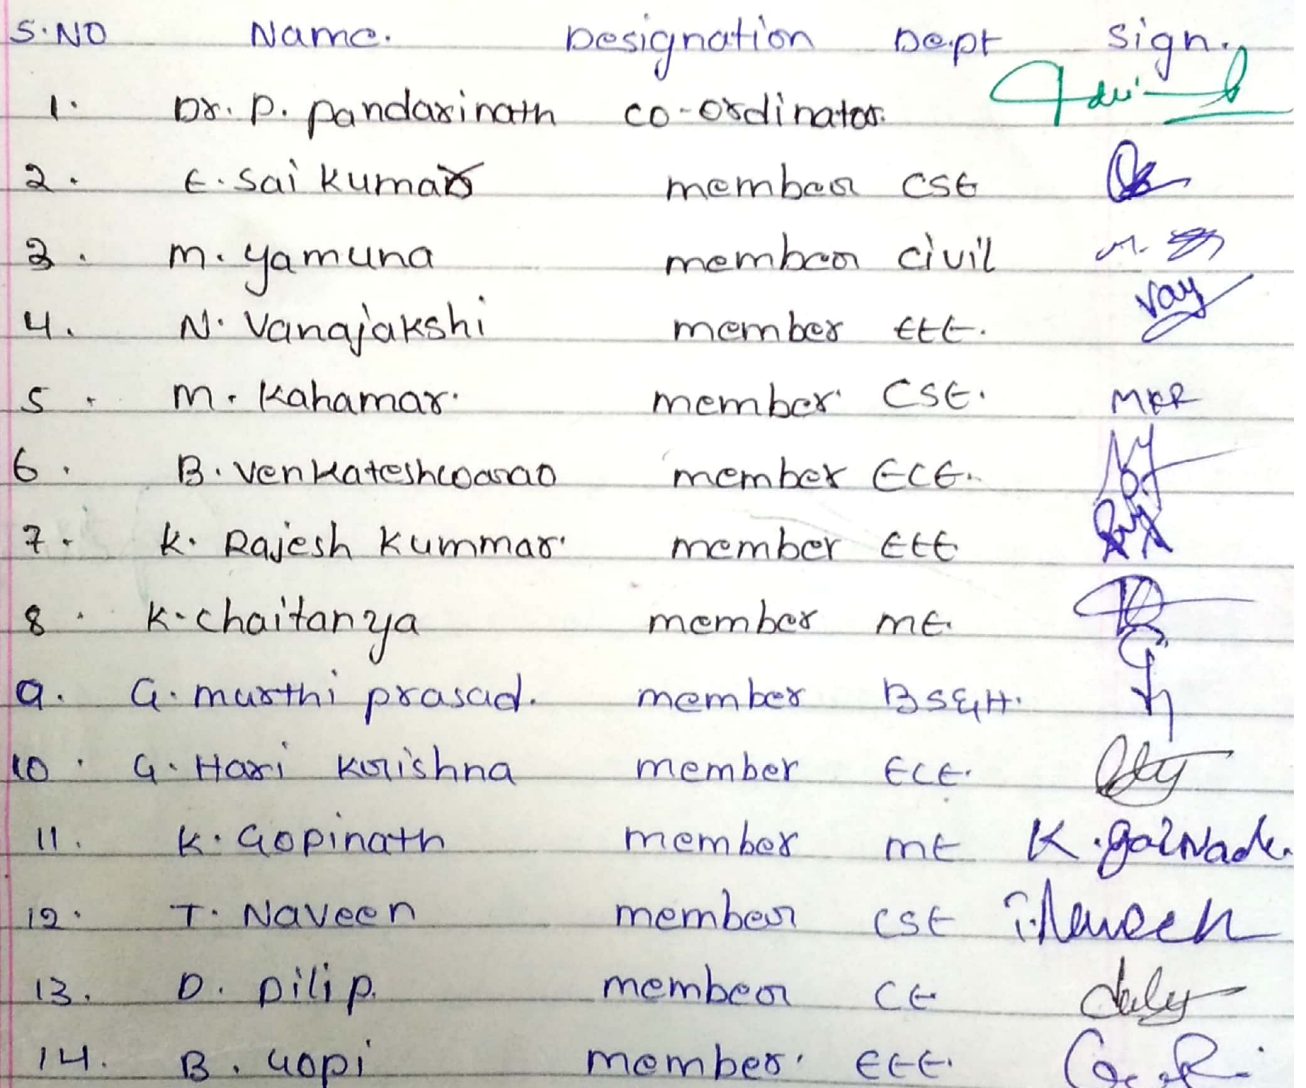 S.NO Name. Designation Dept Sign.
1. Dr. P. Pandarinath co-ordinator.
2. E. Sai kumar member CSE
3. M. Yamuna member civil
4. N. Vanajakshi member EEE. Vay
5. M. Kahamar. member CSE. MKR
6. B. Venkateshwarao member ECE.
7. K. Rajesh Kummar. member EEE
8. K. chaitanya member ME.
9. G. murthi prasad. member BS&H.
10. G. Hari Krishna member ECE.
11. K. Gopinath member ME
12. T. Naveen member CSE T. Naveen
13. D. Dilip. member CE
14. B. Gopi member. EEE.